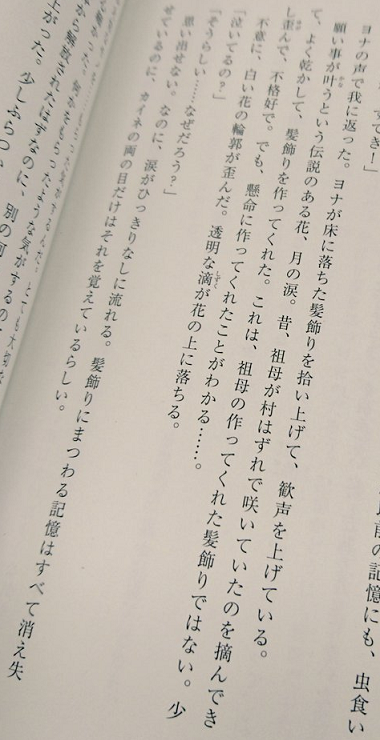 前の記憶にも、虫食い
すてき！」
ヨナの声で我に返った。ヨナが床に落ちた髪飾りを拾い上げて、歓声を上げている。
願い事が叶うという伝説のある花、月の涙。昔、祖母が村はずれで咲いていたのを摘んでき
て、よく乾かして、髪飾りを作ってくれた。これは、祖母の作ってくれた髪飾りではない。少
し歪んで、不格好で。でも、懸命に作ってくれたことがわかる……。
不意に、白い花の輪郭が歪んだ。透明な滴が花の上に落ちる。
「泣いてるの？」
「そうらしい……なぜだろう？」
思い出せない。なのに、涙がひっきりなしに流れる。髪飾りにまつわる記憶はすべて消え失
せているのに、カイネの両の目だけはそれを覚えているらしい。
何かをもらったような気がするんだ。とても大切な
から解放されたはずなのに、別の何
上がった。少しふらつい